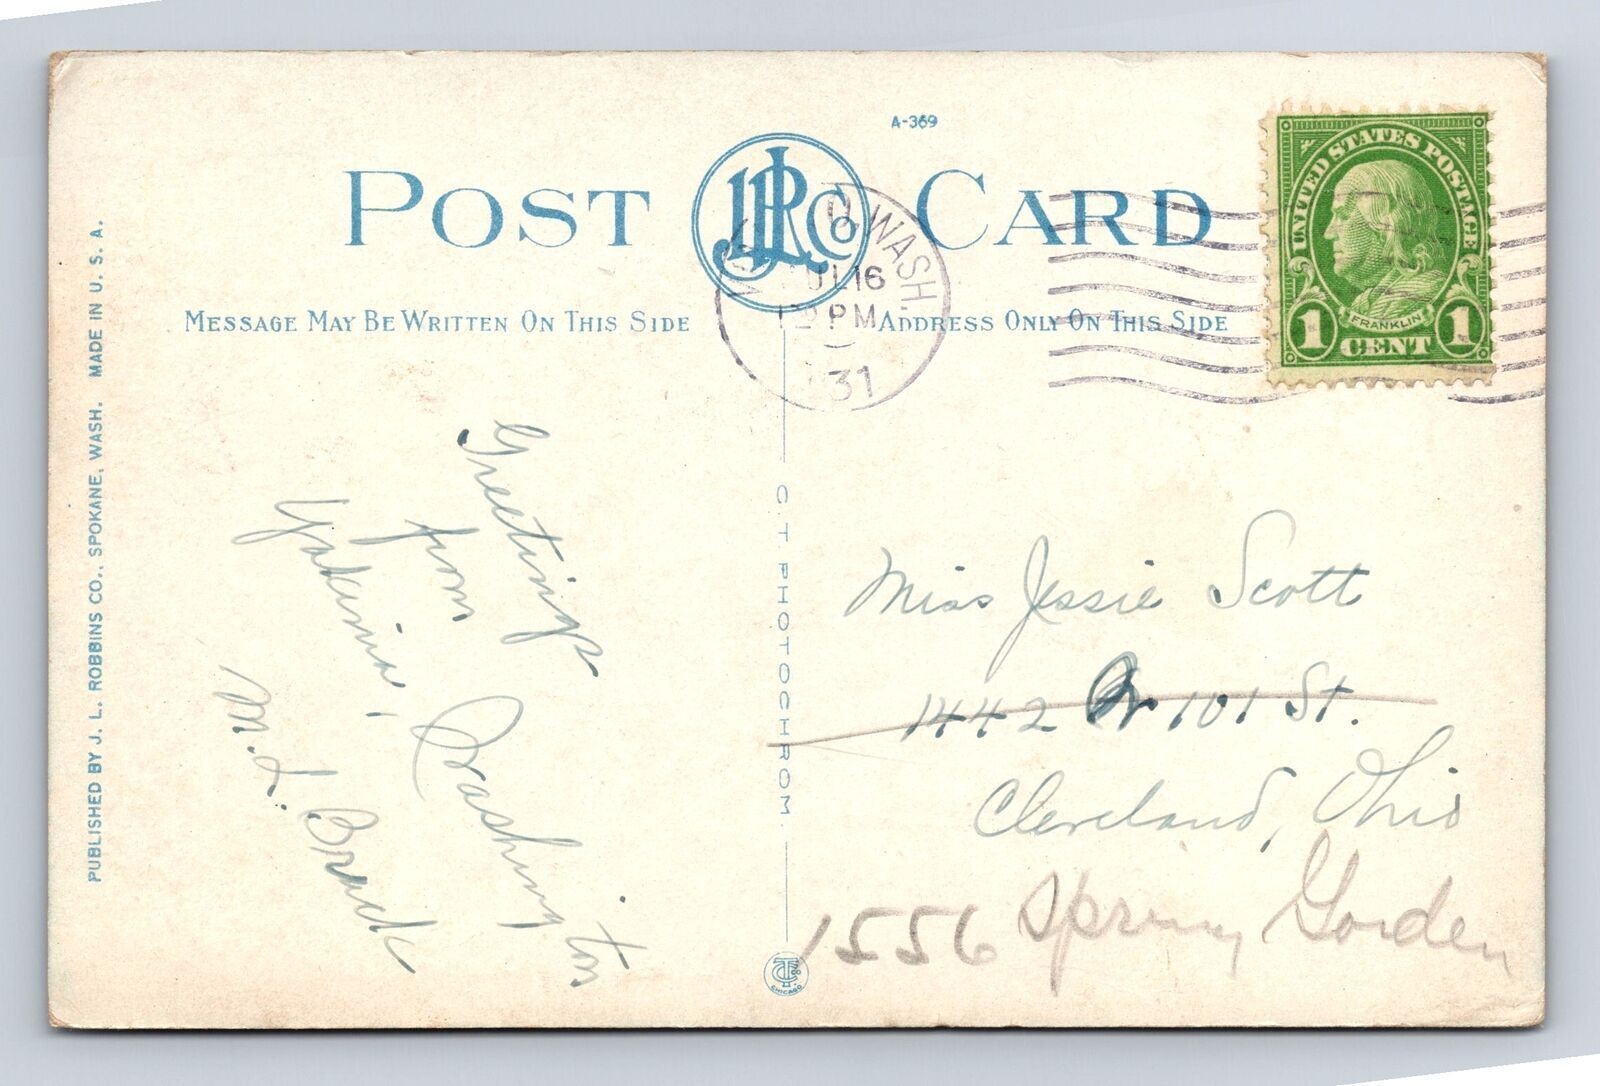 A-369
POST CARD
JLR Co
WASH.
JUL 16
12 PM
1931
UNITED STATES POSTAGE
FRANKLIN
1 CENT 1
MESSAGE MAY BE WRITTEN ON THIS SIDE
ADDRESS ONLY ON THIS SIDE
PUBLISHED BY J. L. ROBBINS CO., SPOKANE, WASH. MADE IN U. S. A.
Greetings
from
Yakima,
Washington
M. L.
C. T. PHOTOCHROM.
Miss Jessie Scott
1442 101 St.
Cleveland, Ohio
1556 Spring Gorden
CHICAGO